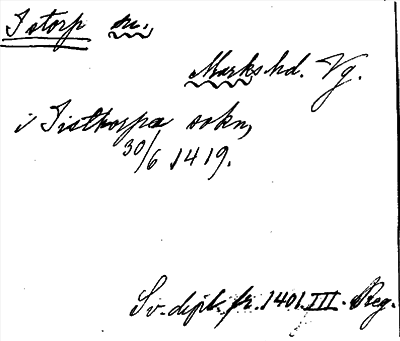 Istorp sn.
Marks hd. Vg.
i Iisthorpa sokn,
30/6 1419.
Sv. dipl. fr. 1401. III. Reg.